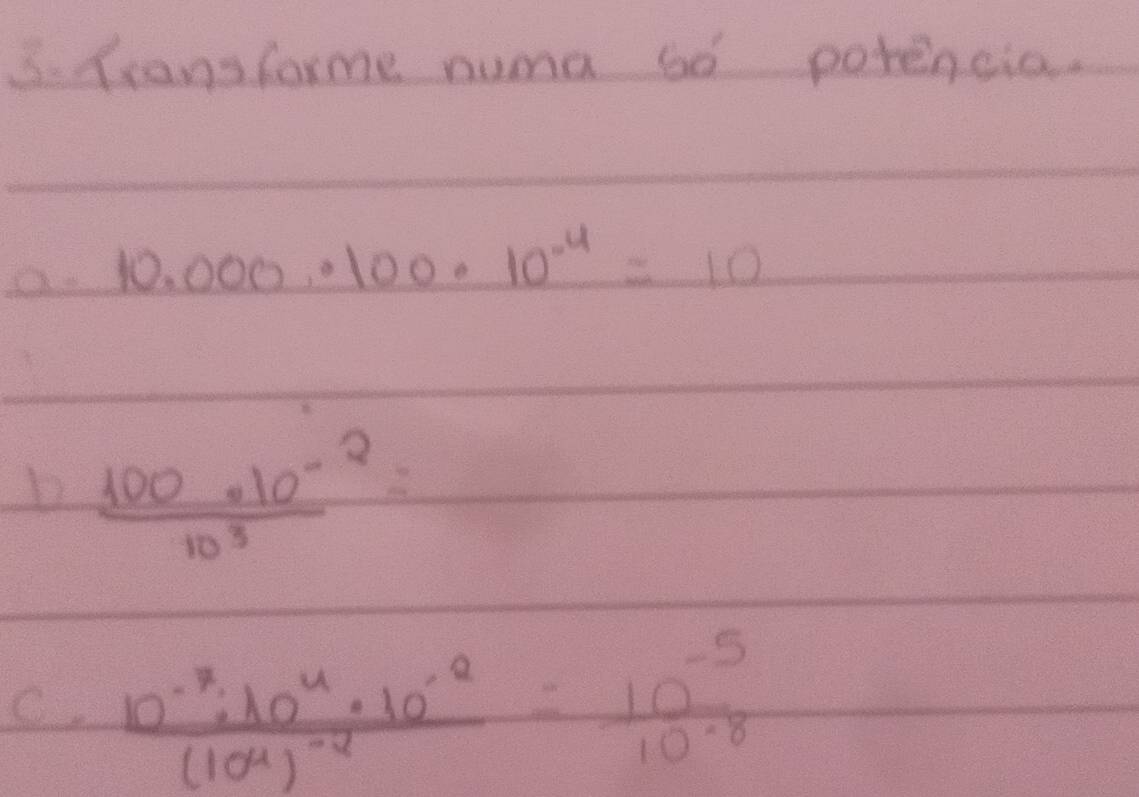 3. Transforme numa só potência.
a. 10.000 . 100 . 10⁻⁴ = 10
b 100 . 10⁻² =
10³
c. 10⁻⁷ . 10⁴ . 10⁻² = 10⁻⁵
(10⁴)⁻² 10⁻⁸